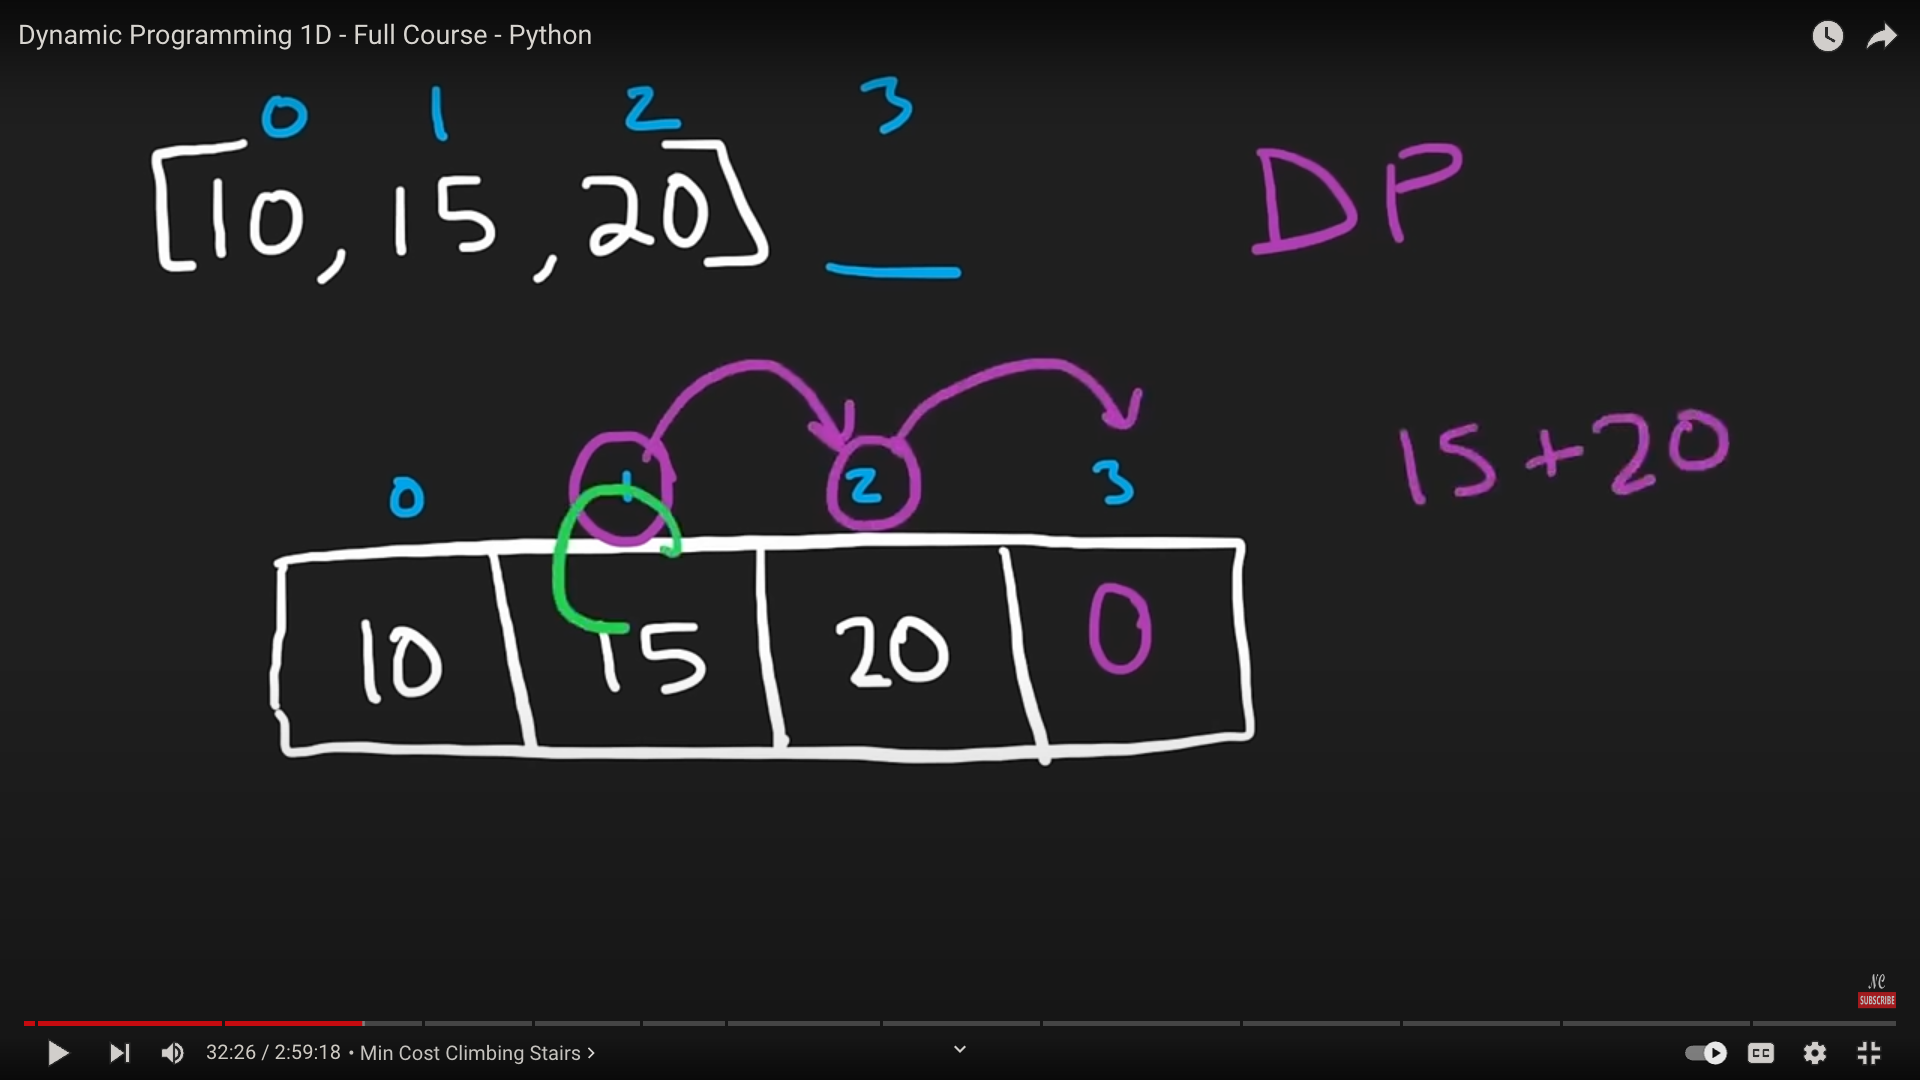 Dynamic Programming 1D - Full Course - Python
0 1 2 3
[10, 15, 20] _
DP
15+20
0 1 2 3
10 15 20 0
NC
SUBSCRIBE
32:26 / 2:59:18 • Min Cost Climbing Stairs >
CC